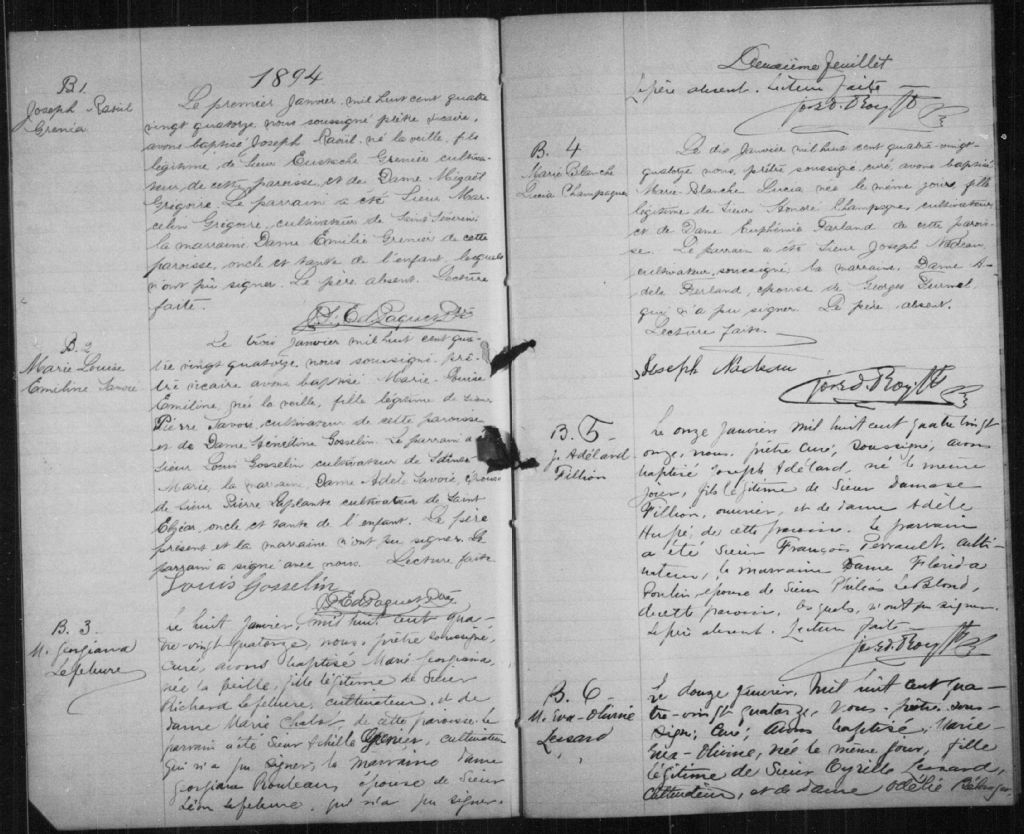 1894
B1
Joseph Raoul
Grenia
Le premier Janvier mil huit cent quatre
vingt quatorze nous soussigné prêtre vicaire,
avons baptisé Joseph Raoul né la veille, fils
légitime de Sieur Eustache Grenier cultiva-
teur de cette paroisse et de Dame
Grégoire. Le parrain a été Sieur Mar-
celin Grégoire, cultivateur de Saint Séverin
la marraine Dame Emilie Grenier de cette
paroisse, oncle et tante de l'enfant lesquels
n'ont pu signer. Le père absent. Lecture
faite.
Ed Paquet Ptre
B. 2
Marie Louise
Emiline Savoie
Le trois Janvier mil huit cent qua-
tre vingt quatorze nous soussigné prê-
tre vicaire avons baptisé Marie Louise
Emiline, née la veille, fille légitime de Sieur
Pierre Savoie, cultivateur de cette paroisse
et de Dame Gosselin. Le parrain a
Sieur Louis Gosselin cultivateur de
Marie, la marraine Dame Adèle Savoie, épouse
de Sieur Pierre Laplante cultivateur de Saint
Elzéar, oncle et tante de l'enfant. Le père
présent et la marraine n'ont pu signer. Le
parrain a signé avec nous. Lecture faite
Louis Gosselin
Ed Paquet Ptre
B. 3.
M. Georgiana
Lefebvre
Le huit Janvier, mil huit cent qua-
tre-vingt quatorze, nous, prêtre soussigné,
curé, avons baptisé Marie Georgiana,
née la veille, fille légitime de Sieur
Richard Lefebvre, cultivateur, et de
Dame Marie Chabot de cette paroisse. Le
parrain a été Sieur Achille Grenier, cultivateur
qui n'a pu signer, la marraine Dame
Georgiana Rouleau, épouse de Sieur
Léon Lefebvre, qui n'a pu signer.
Deuxième feuillet
Le père absent. Lecture faite
Jos. Ed. Roy Ptre
B. 4
Marie Blanche
Lucia Champagne
Le dix Janvier mil huit cent quatre-vingt-
quatorze nous, prêtre soussigné, curé, avons baptisé
Marie-Blanche Lucia née le même jour, fille
légitime de Sieur Honoré Champagne, cultivateur
et de Dame Euphémie Farland de cette parois-
se. Le parrain a été Sieur Joseph Nadeau,
cultivateur, soussigné, la marraine, Dame A-
dèle Ferland, épouse de Georges
qui n'a pu signer. Le père absent.
Lecture faite.
Joseph Nadeau
Jos. Ed. Roy Ptre
B. 5
J. Adélard
Fillion
Le onze Janvier mil huit cent quatre vingt
onze, nous, prêtre curé, soussigné, avons
baptisé Joseph Adélard, né le même
jour, fils légitime de Sieur Damase
Fillion, ouvrier, et de dame Adèle
Hupé, de cette paroisse. Le parrain
a été Sieur François Perrault, culti-
vateur, la marraine Dame Florida
Poulin, épouse de Sieur Philéas LeBlond,
de cette paroisse, lesquels n'ont pu signer.
Le père absent. Lecture faite
Jos. Ed. Roy Ptre
B. 6
M. Eva-Olivine
Lessard
Le douze Janvier, mil huit cent qua-
tre-vingt quatorze, Nous, prêtre sous-
signé, Curé, Avons baptisé, Marie
Eva-Olivine, née le même jour, fille
légitime de Sieur Cyrille Lessard,
Cultivateur, et de Dame Odélie